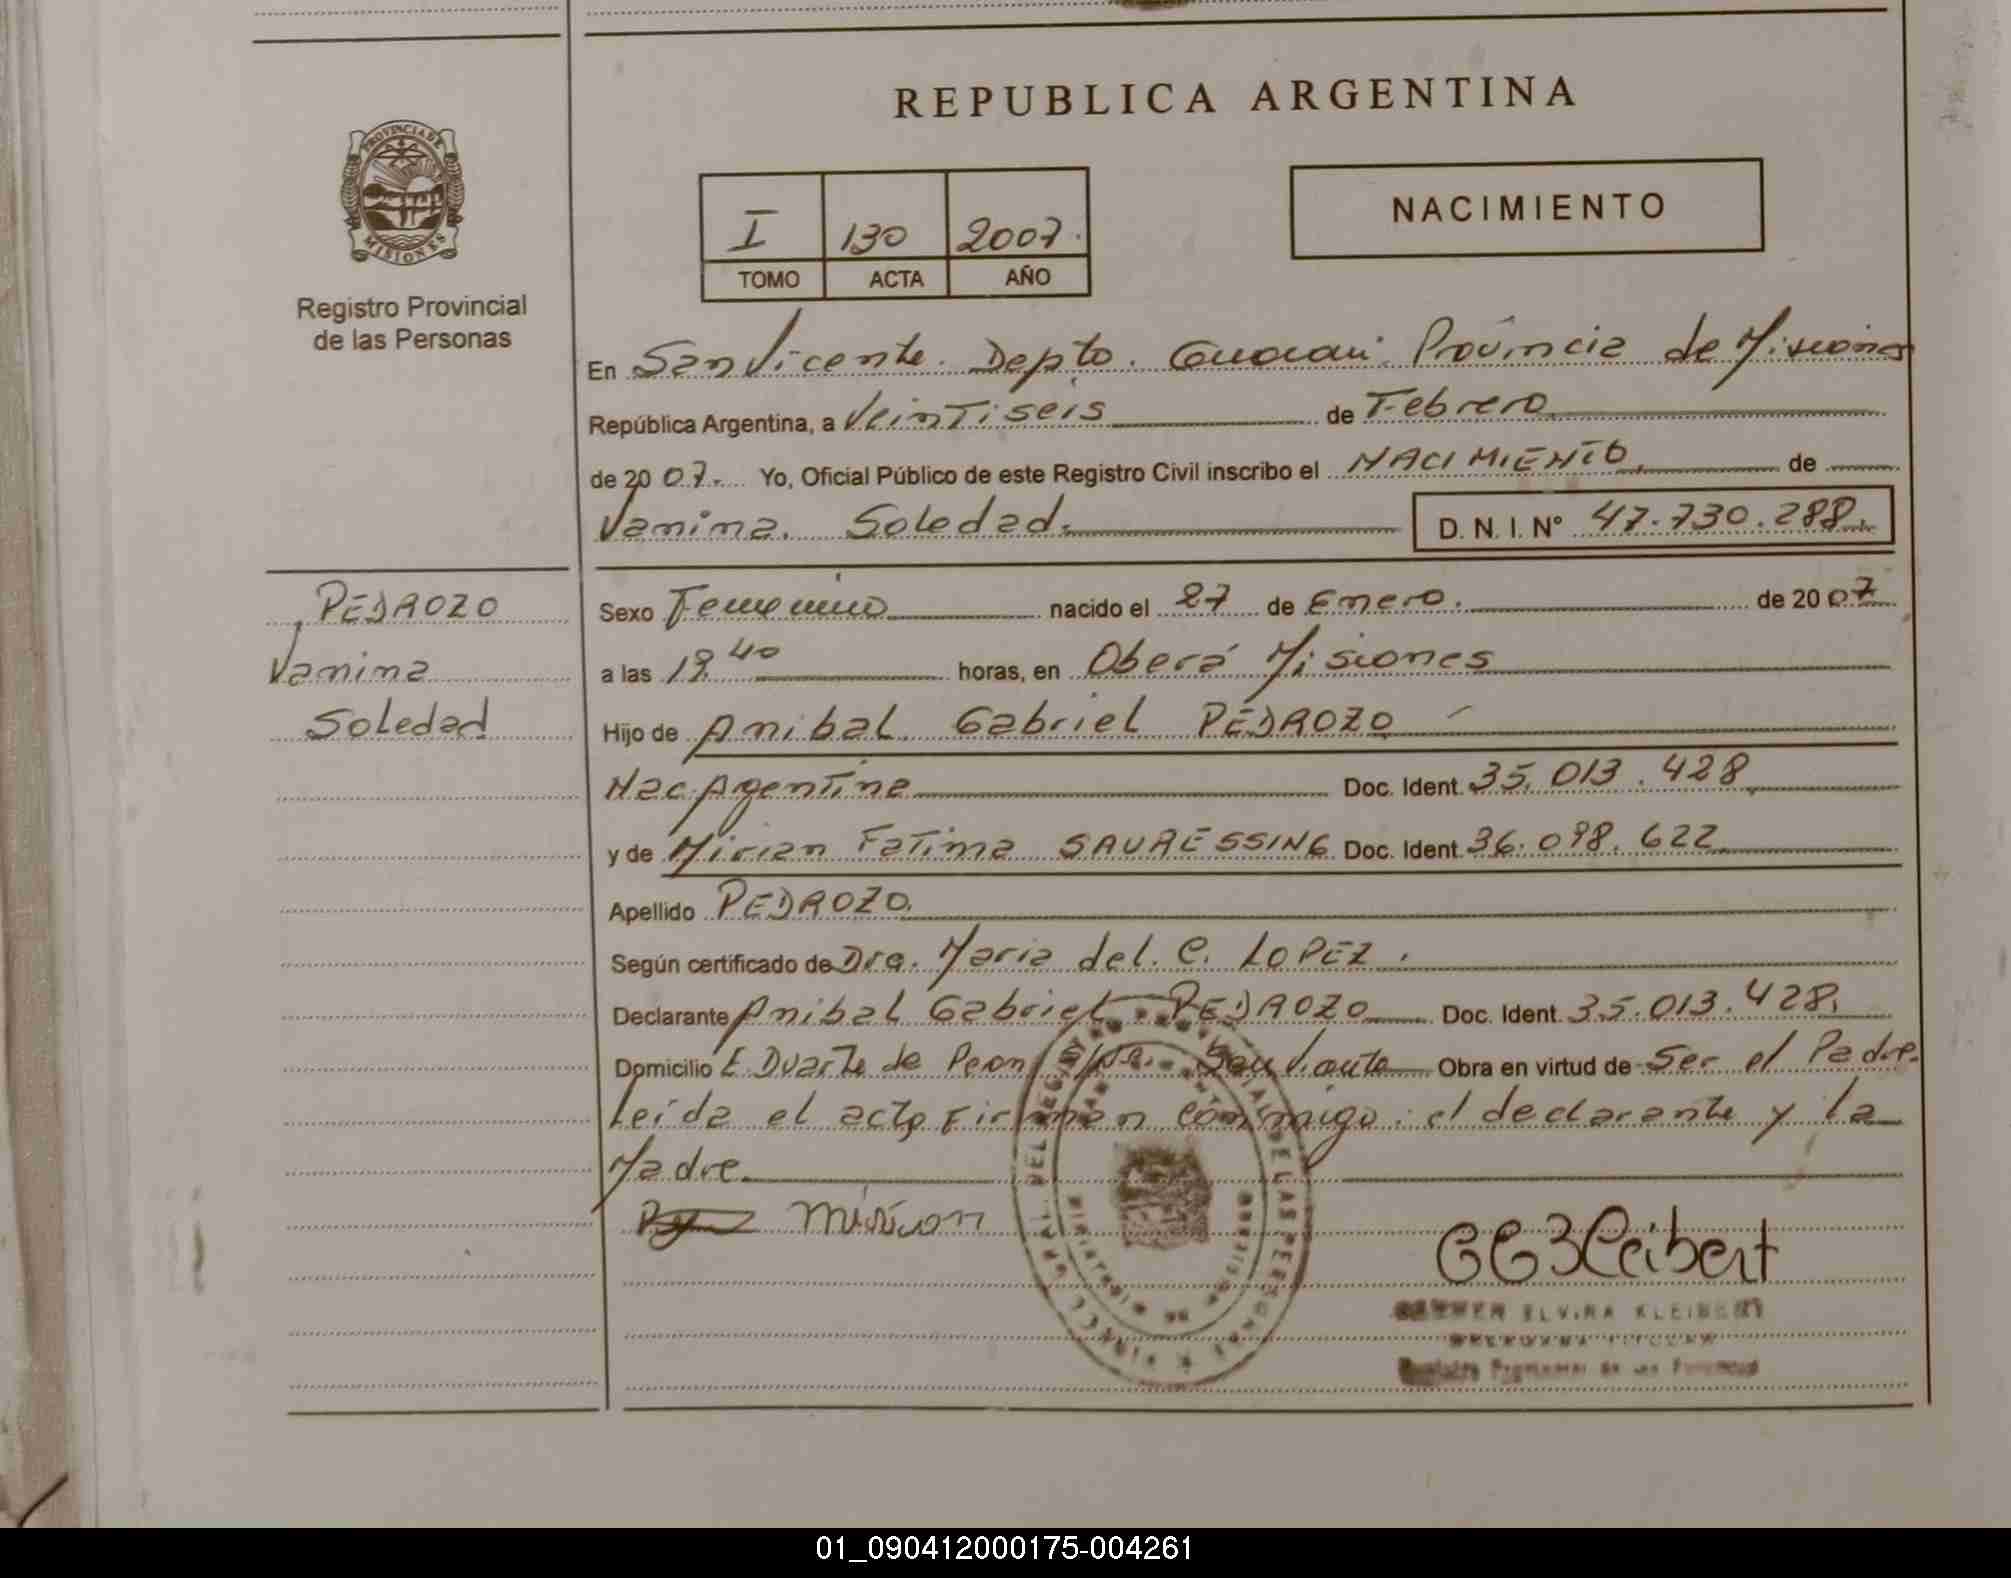 REPUBLICA ARGENTINA
PROVINCIA DE
MISIONES
Registro Provincial
de las Personas
I 130 2007.
TOMO ACTA AÑO
NACIMIENTO
En San Vicente. Depto. Guarani Provincia de Misiones
República Argentina, a Veintiseis de Febrero
de 2007. Yo, Oficial Público de este Registro Civil inscribo el NACIMIENTO. de
Vanina. Soledad. D. N. I. Nº 47.730.288.
PEDROZO
Vanina
Soledad
Sexo Femenino nacido el 27 de Enero. de 2007
a las 19.40 horas, en Oberá Misiones
Hijo de Anibal Gabriel PEDROZO
Nac. Argentina Doc. Ident. 35.013.428
y de Mirian Fatima SAURESSING Doc. Ident. 36.098.622
Apellido PEDROZO.
Según certificado de Dra. Maria del. C. LOPEZ.
Declarante Anibal Gabriel PEDROZO Doc. Ident. 35.013.428.
Domicilio E. Duarte de Peron San Vicente Obra en virtud de Ser el Padre.
Leida el acta Firman conmigo. el declarante y la
Madre.
Mirian
Kleibert
ELVIRA KLEIBERT
Registro Provincial de las Personas
01_090412000175-004261